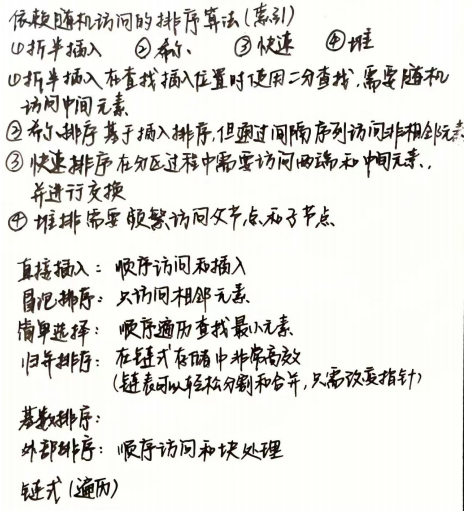 依赖随机访问的排序算法(索引)
①折半插入 ②希尔 ③快速 ④堆
①折半插入在查找插入位置时使用二分查找,需要随机
访问中间元素
②希尔排序基于插入排序,但通过间隔序列访问非相邻元素
③快速排序在分区过程中需要访问两端和中间元素,
并进行交换
④堆排需要频繁访问父节点和子节点
直接插入:顺序访问和插入
冒泡排序:只访问相邻元素
简单选择:顺序遍历查找最小元素
归并排序:在链式存储中非常高效
(链表可以轻松分割和合并,只需改变指针)
基数排序:
外部排序:顺序访问和块处理
链式(遍历)